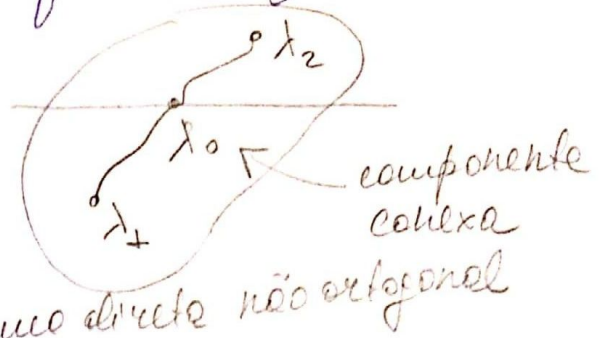 λ₂
λ₀
componente
conexa
λ₁
direta não ortogonal